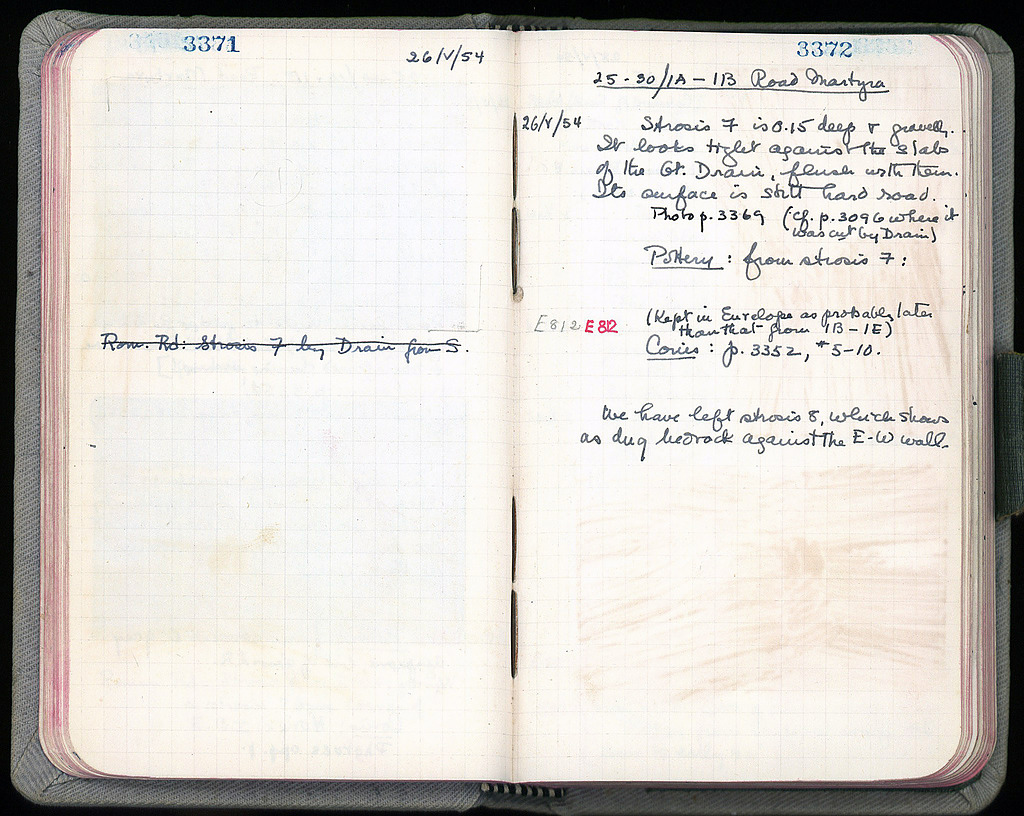 3371
26/V/54
Rom. Rd: Strosis 7 by Drain from S.
3372
25-30/IA - IIB Road Martyra
26/V/54
Strosis 7 is 0.15 deep & gravelly.
It looks tight against the slabs
of the Gt. Drain, flush with them.
Its surface is still hard road.
Photo p. 3369 (cf. p. 3096 where it
was cut by Drain)
Pottery : from strosis 7 :
E812 E 812
(Kept in Envelope as probably later
than that from IB - IE)
Coins : p. 3352, # 5-10.
We have left strosis 8, which shows
as dug bedrock against the E-W wall.